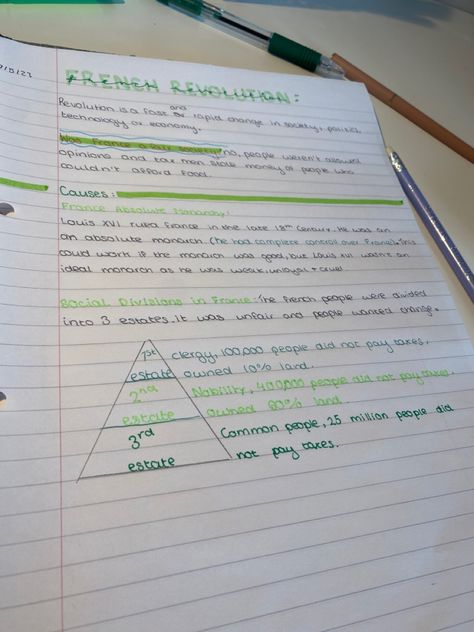 FRENCH REVOLUTION:
Revolution is a fast and rapid change in society, politics,
technology or economy.
Was France a fair society? no, people weren't allowed
opinions and tax men stole money of people who
couldn't afford food.
Causes:
France Absolute Monarchy:
Louis XVI ruled France in the late 18th Century. He was an
an absolute monarch. (he had complete control over France). This
could work if the monarch was good, but Louis XVI wasn't an
ideal monarch as he was weak, unloyal + cruel
Social Divisions in France: The French people were divided
into 3 estates. it was unfair and people wanted change.
1st estate
clergy, 100,000 people did not pay taxes,
owned 10% land.
2nd estate
Nobility, 400,000 people did not pay taxes.
owned 60% land.
3rd estate
Common people, 25 million people did
not pay taxes.